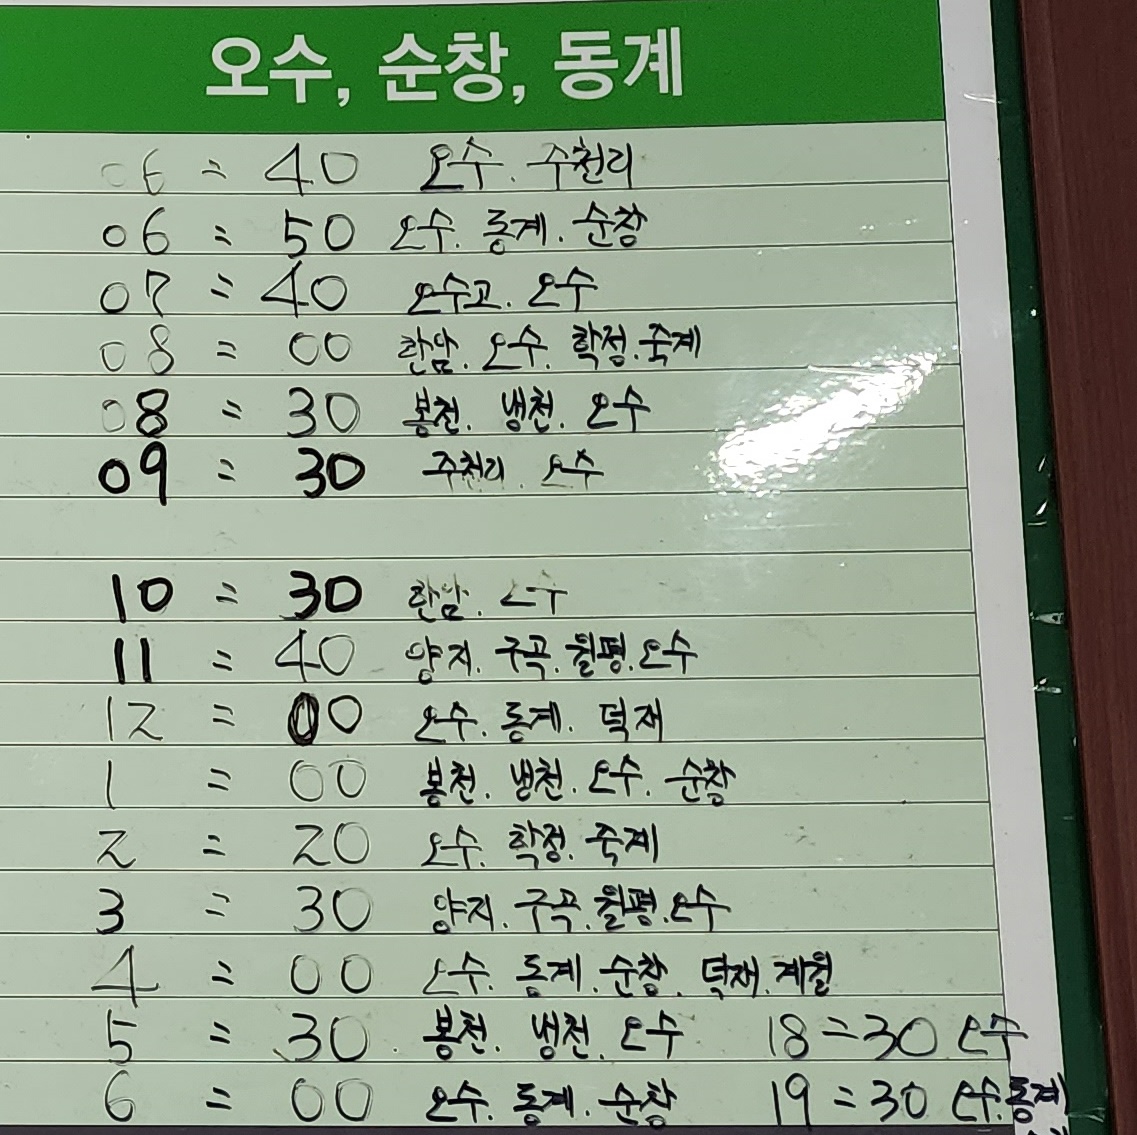 오수, 순창, 동계
06 = 40 오수. 수천리
06 = 50 오수. 동계. 순창
07 = 40 오수고. 오수
08 = 00 한암. 오수. 학정. 죽계
08 = 30 봉천. 냉천. 오수
09 = 30 주천리. 오수
10 = 30 한암. 오수
11 = 40 양지. 구곡. 월평. 오수
12 = 00 오수. 동계. 덕재
1 = 00 봉천. 냉천. 오수. 순창
2 = 20 오수. 학정. 죽계
3 = 30 양지. 구곡. 월평. 오수
4 = 00 오수. 동계. 순창. 덕재. 계월
5 = 30 봉천. 냉천. 오수 18=30 오수
6 = 00 오수. 동계. 순창 19=30 오수. 동계